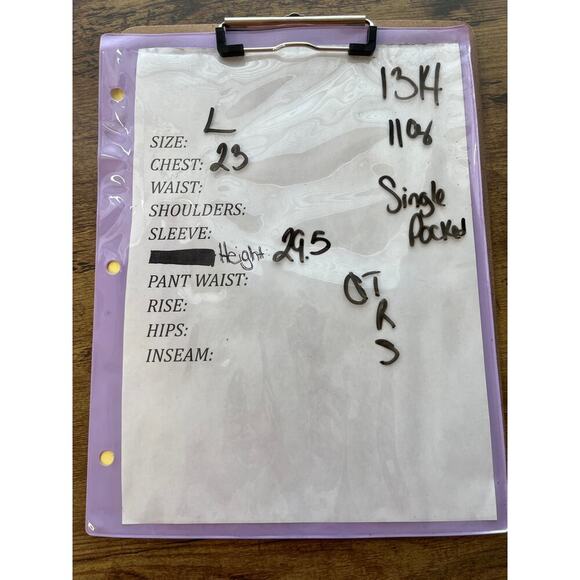 L
SIZE:
CHEST: 23
WAIST:
SHOULDERS:
SLEEVE:
Height: 29.5
PANT WAIST:
RISE:
HIPS:
INSEAM:
11oz
Single
Pocket
R